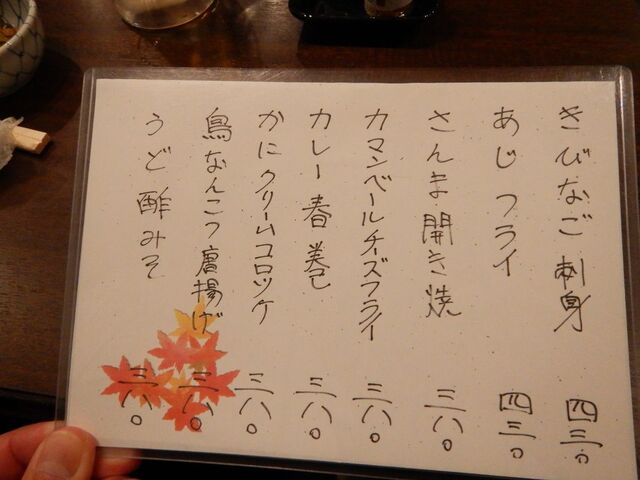 きびなご刺身 四三〇
あじフライ 四三〇
さんま開き焼 三八〇
カマンベールチーズフライ 三八〇
カレー春巻 三八〇
かにクリームコロッケ 三八〇
鳥なんこつ唐揚げ 三八〇
うど酢みそ 三八〇